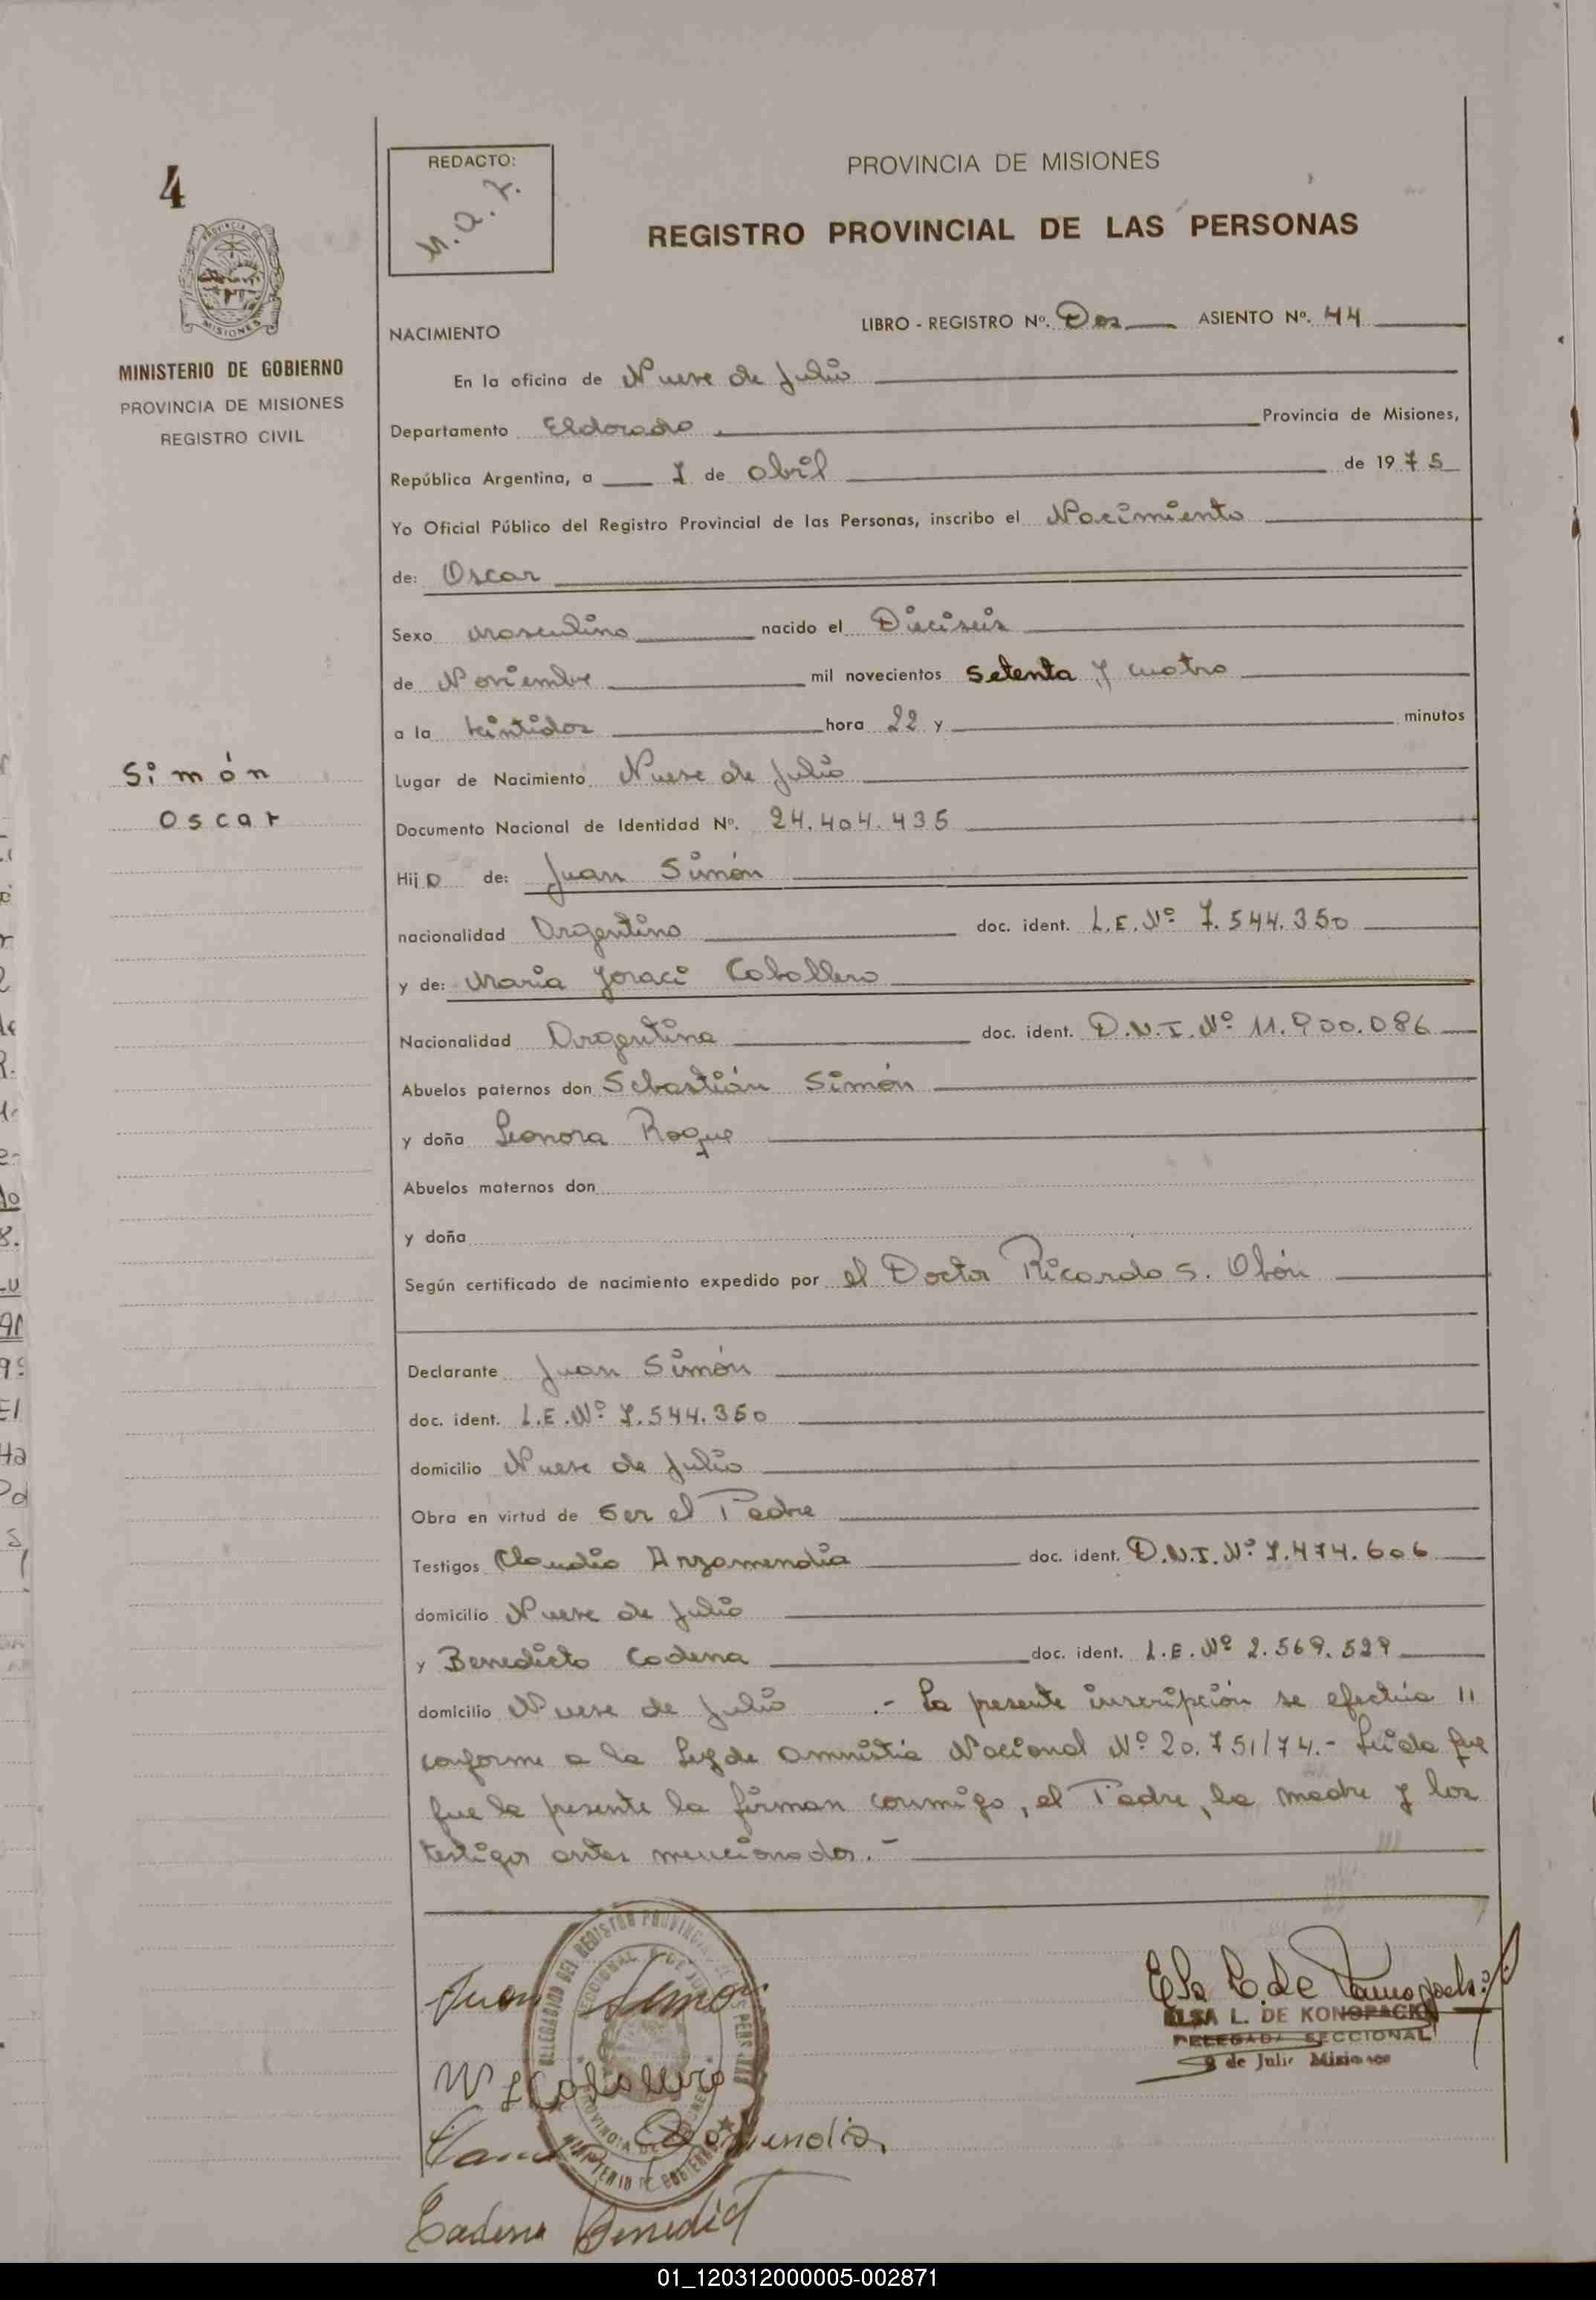 4
REDACTO:
PROVINCIA DE MISIONES
REGISTRO PROVINCIAL DE LAS PERSONAS
MINISTERIO DE GOBIERNO
PROVINCIA DE MISIONES
REGISTRO CIVIL
NACIMIENTO
LIBRO - REGISTRO Nº. Dos ASIENTO Nº. 44
En la oficina de Nueve de Julio
Departamento Eldorado Provincia de Misiones,
República Argentina, a 7 de abril de 1975
Yo Oficial Público del Registro Provincial de las Personas, inscribo el Nacimiento
de: Oscar
Sexo Masculino nacido el Dieciseis
de Noviembre mil novecientos Setenta y cuatro
a la veintidos hora 22 y minutos
Simón
Oscar
Lugar de Nacimiento Nueve de Julio
Documento Nacional de Identidad Nº. 24.404.435
Hijo de: Juan Simón
nacionalidad Argentino doc. ident. L.E.Nº 7.544.350
y de: Maria Joraci Caballero
Nacionalidad Argentina doc. ident. D.N.I.Nº 11.900.086
Abuelos paternos don Sebastián Simón
y doña Leonora Roque
Abuelos maternos don
y doña
Según certificado de nacimiento expedido por el Doctor Ricardo S. Obón
Declarante Juan Simón
doc. ident. L.E.Nº 7.544.350
domicilio Nueve de Julio
Obra en virtud de Ser el Padre
Testigos Claudio Arzamendia doc. ident. D.N.I.Nº 7.474.606
domicilio Nueve de Julio
y Benedicto Cadena doc. ident. L.E.Nº 2.569.529
domicilio Nueve de Julio .- La presente inscripción se efectúa //
conforme a la Ley de Amnistia Nacional Nº 20.751/74.- Leida que
fue la presente la firman conmigo, el Padre, la madre y los
testigos antes mencionados.-
Juan Simon
M J Caballero
Cadena Benedict
ELSA L. DE KONOPACKI
DELEGADA SECCIONAL
9 de Julio Misiones
01_120312000005-002871